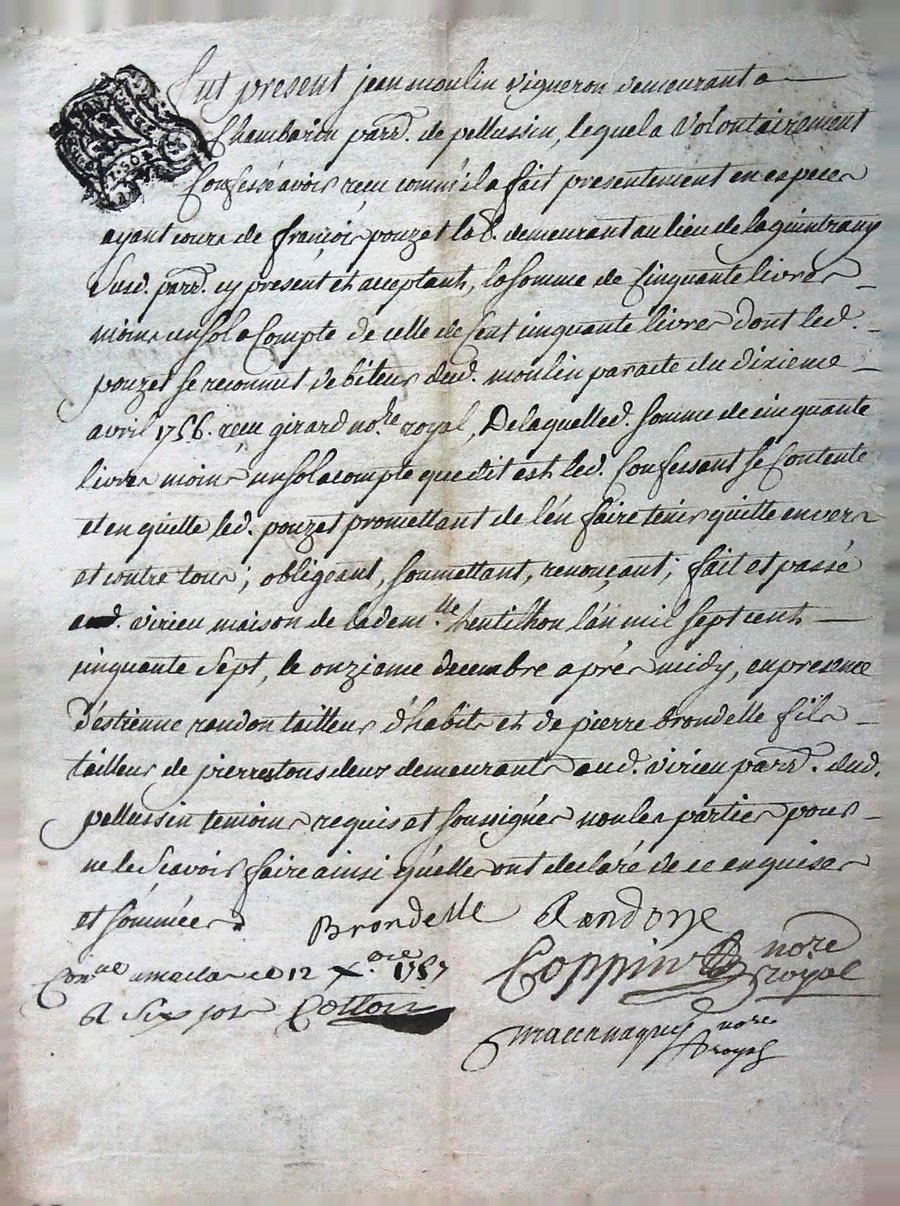 Fut present jean moulin vigneron demeurant a
Chambarin parr. de pellussin, lequel a volontairement
Confessé avoir reçu comme il a fait presentement en especes
ayant cours de françois pouzet lab. demeurant au lieu de la
Susd. parr. cy present et acceptant, la somme de Cinquante livres
moins un sol a Compte de celle de Cent cinquante livres dont led.
pouzet se reconnut debiteur dud. moulin par acte du dixieme
avril 1756. reçu girard nore. royal, De laquelled. somme de cinquante
livres moins un sol a compte que dit est led. Confessant se Contente
et en quitte led. pouzet promettant de l'en faire tenir quitte envers
et contre tous; obligeant, soumettant, renonçant; fait et passé
aud. virieu maison de lademlle. l'an mil sept cent
cinquante Sept, le onzieme decembre aprés midy, en presence
d'estienne randon tailleur d'habits et de pierre brondelle fils
tailleur de pierres tous deux demeurants aud. virieu parr. dud.
pellussin temoins requis et soussignés non les parties pour
ne le Scavoir faire ainsi qu'elles ont declaré de ce enquises
et sommées
Brondelle Randon
Connе a le 12 Xbre 1757 Coppin nore royal
R Six sols Cottoir
nore royal